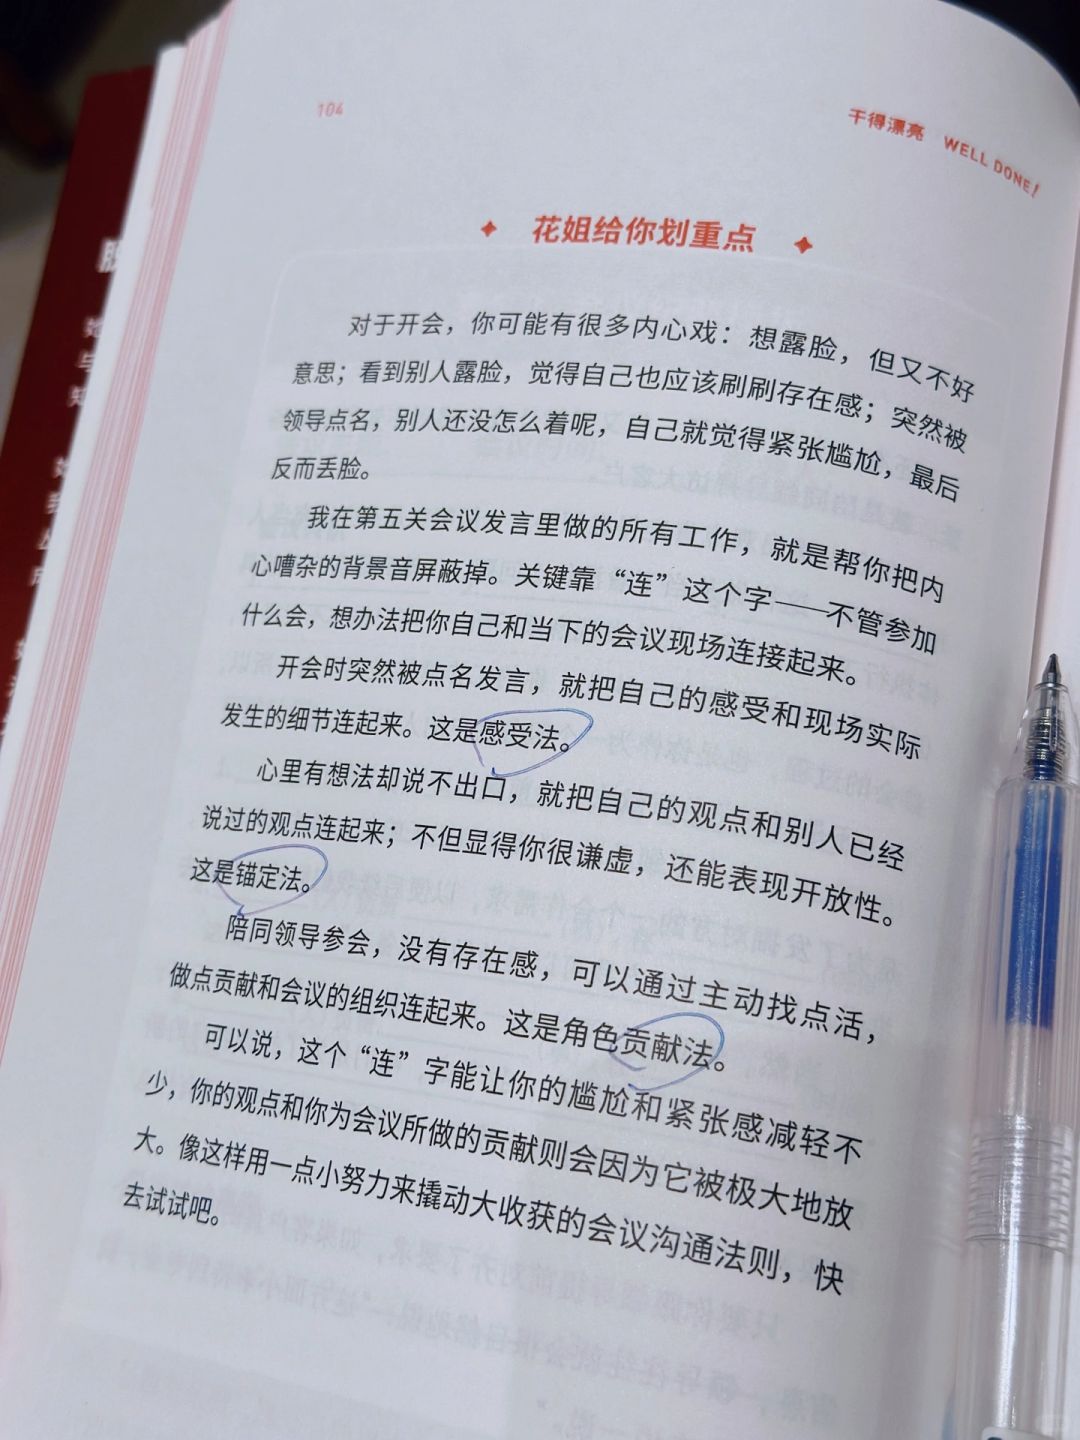 104
干得漂亮 WELL DONE!
花姐给你划重点
对于开会，你可能有很多内心戏：想露脸，但又不好
意思；看到别人露脸，觉得自己也应该刷刷存在感；突然被
领导点名，别人还没怎么着呢，自己就觉得紧张尴尬，最后
反而丢脸。
我在第五关会议发言里做的所有工作，就是帮你把内
心嘈杂的背景音屏蔽掉。关键靠“连”这个字——不管参加
什么会，想办法把你自己和当下的会议现场连接起来。
开会时突然被点名发言，就把自己的感受和现场实际
发生的细节连起来。这是感受法。
心里有想法却说不出口，就把自己的观点和别人已经
说过的观点连起来；不但显得你很谦虚，还能表现开放性。
这是锚定法。
陪同领导参会，没有存在感，可以通过主动找点活，
做点贡献和会议的组织连起来。这是角色贡献法。
可以说，这个“连”字能让你的尴尬和紧张感减轻不
少，你的观点和你为会议所做的贡献则会因为它被极大地放
大。像这样用一点小努力来撬动大收获的会议沟通法则，快
去试试吧。